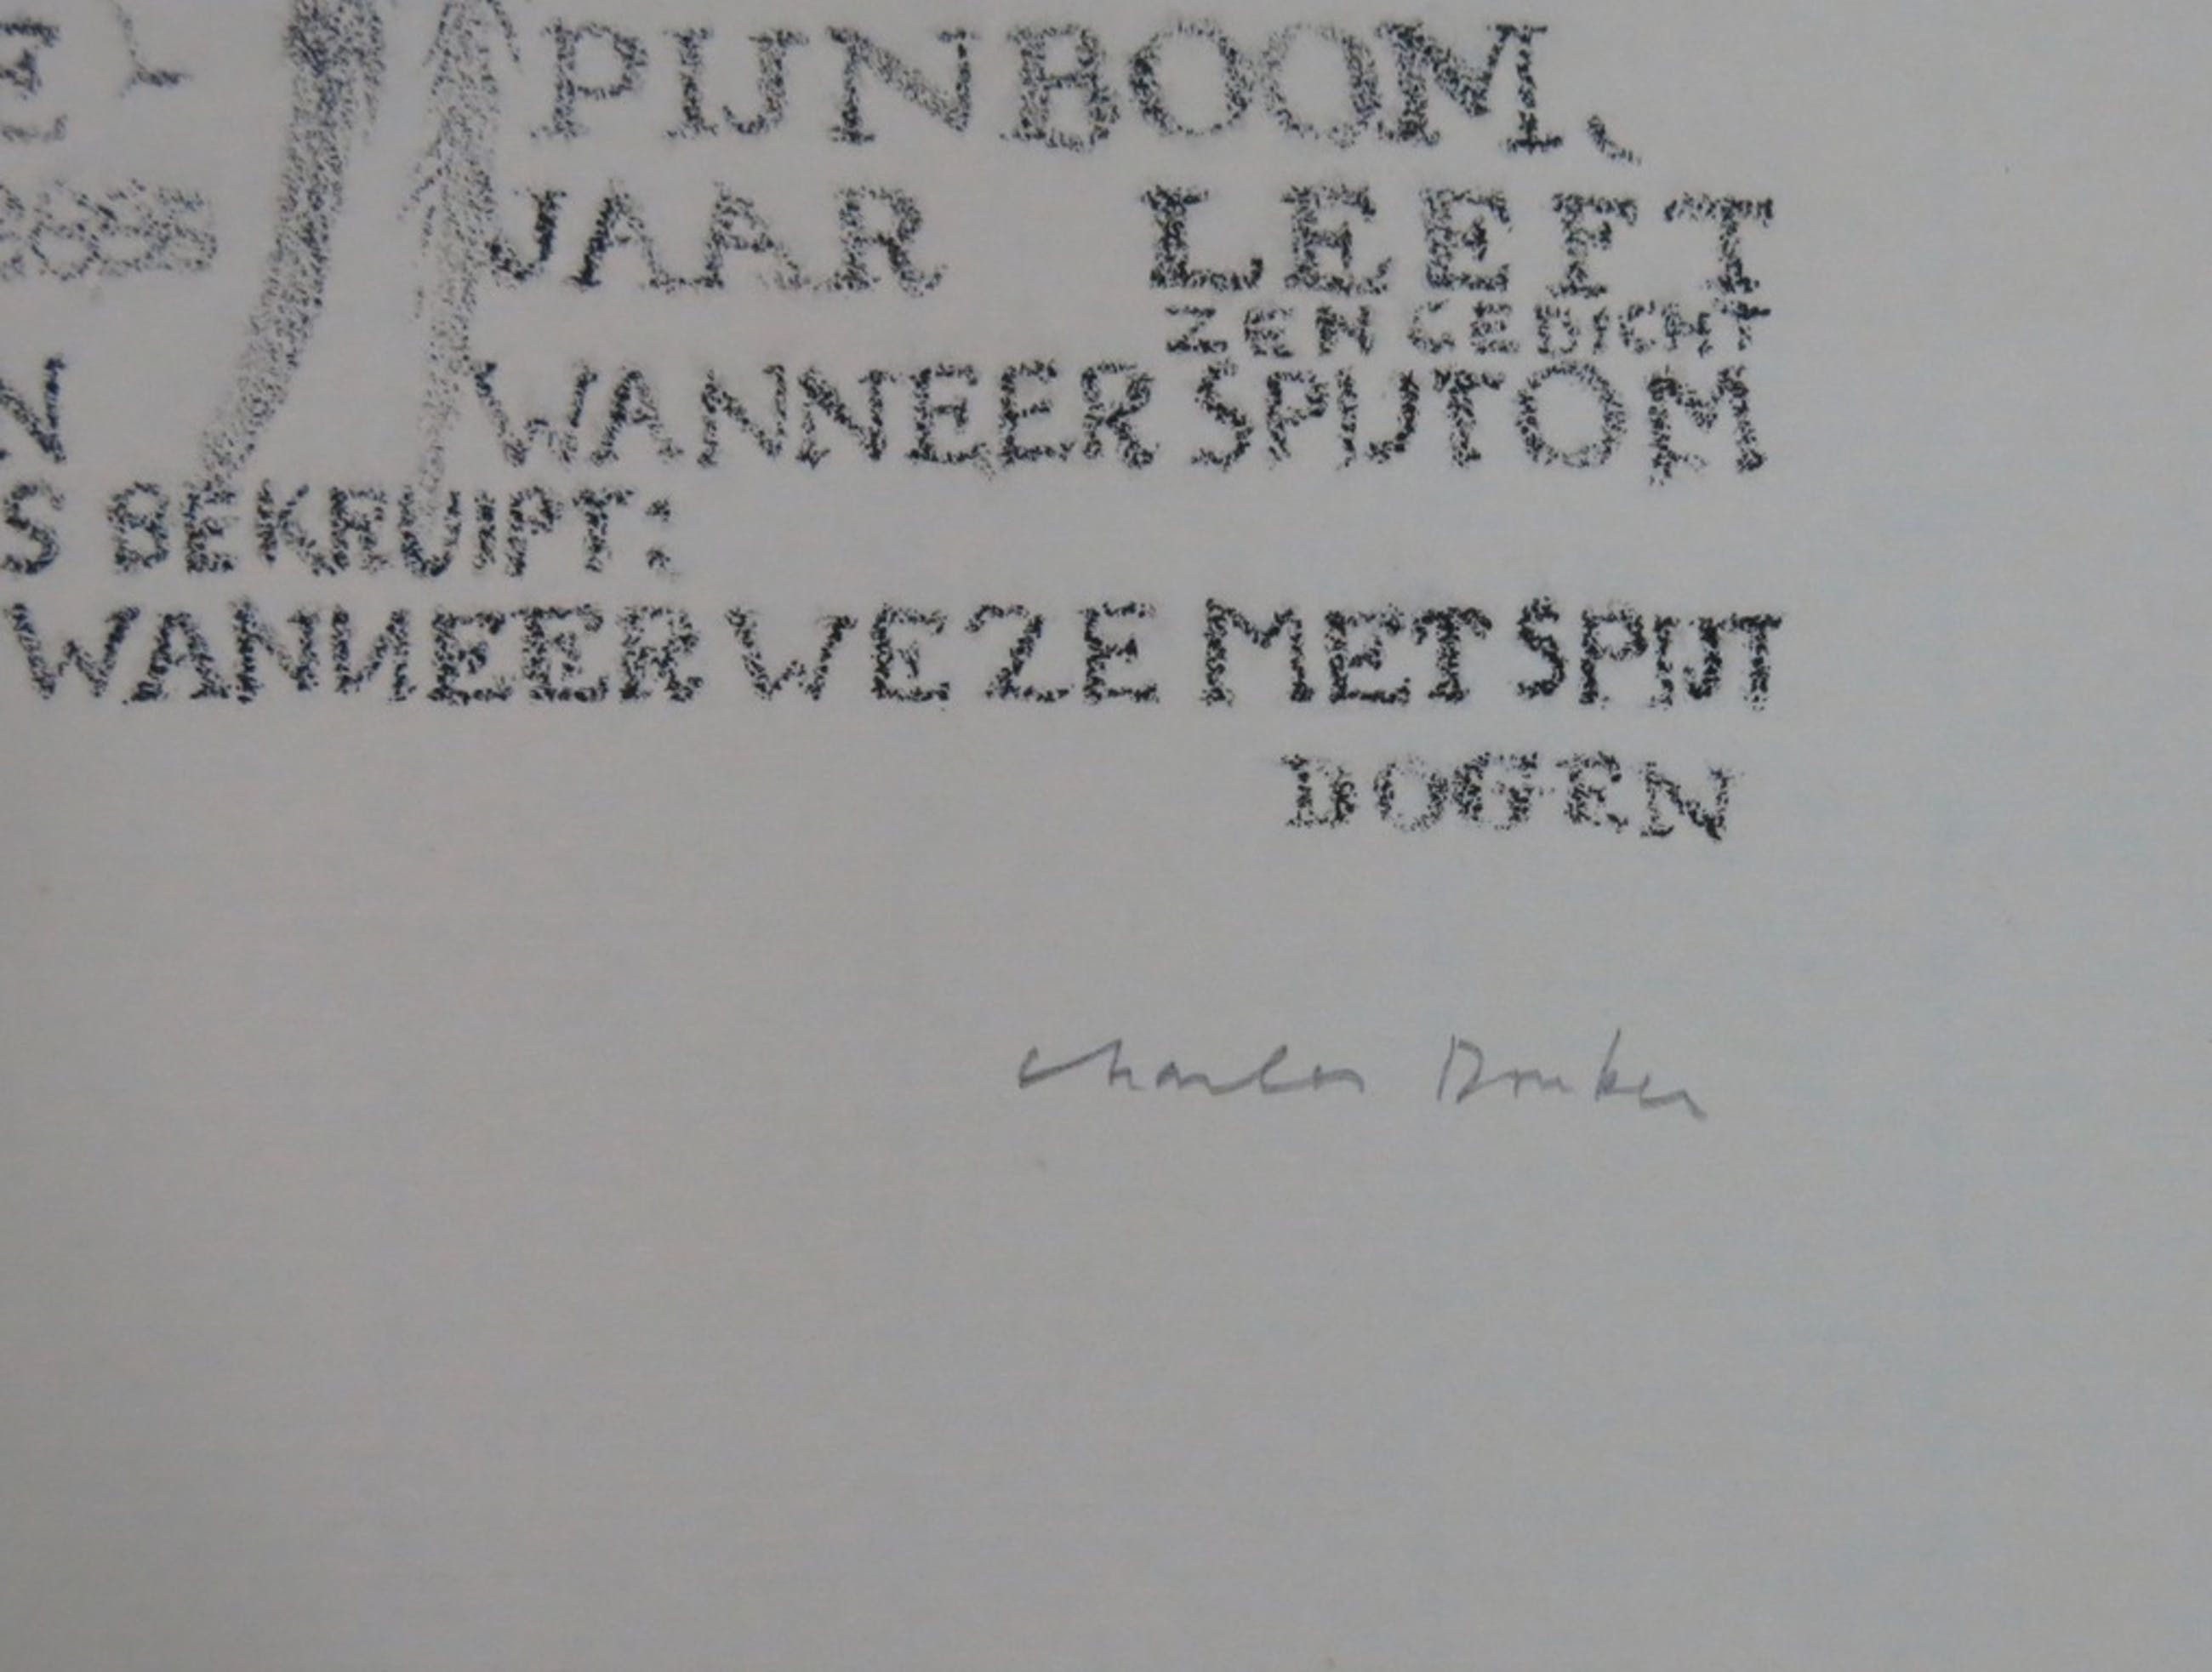 E PIJNBOOM,
JAAR LEEFT
ZEN GEDICHT
N WANNEER SPIJT OM
S BEKRUIPT:
WANNEER WE ZE MET SPIJT
DOGEN
Charles Donker